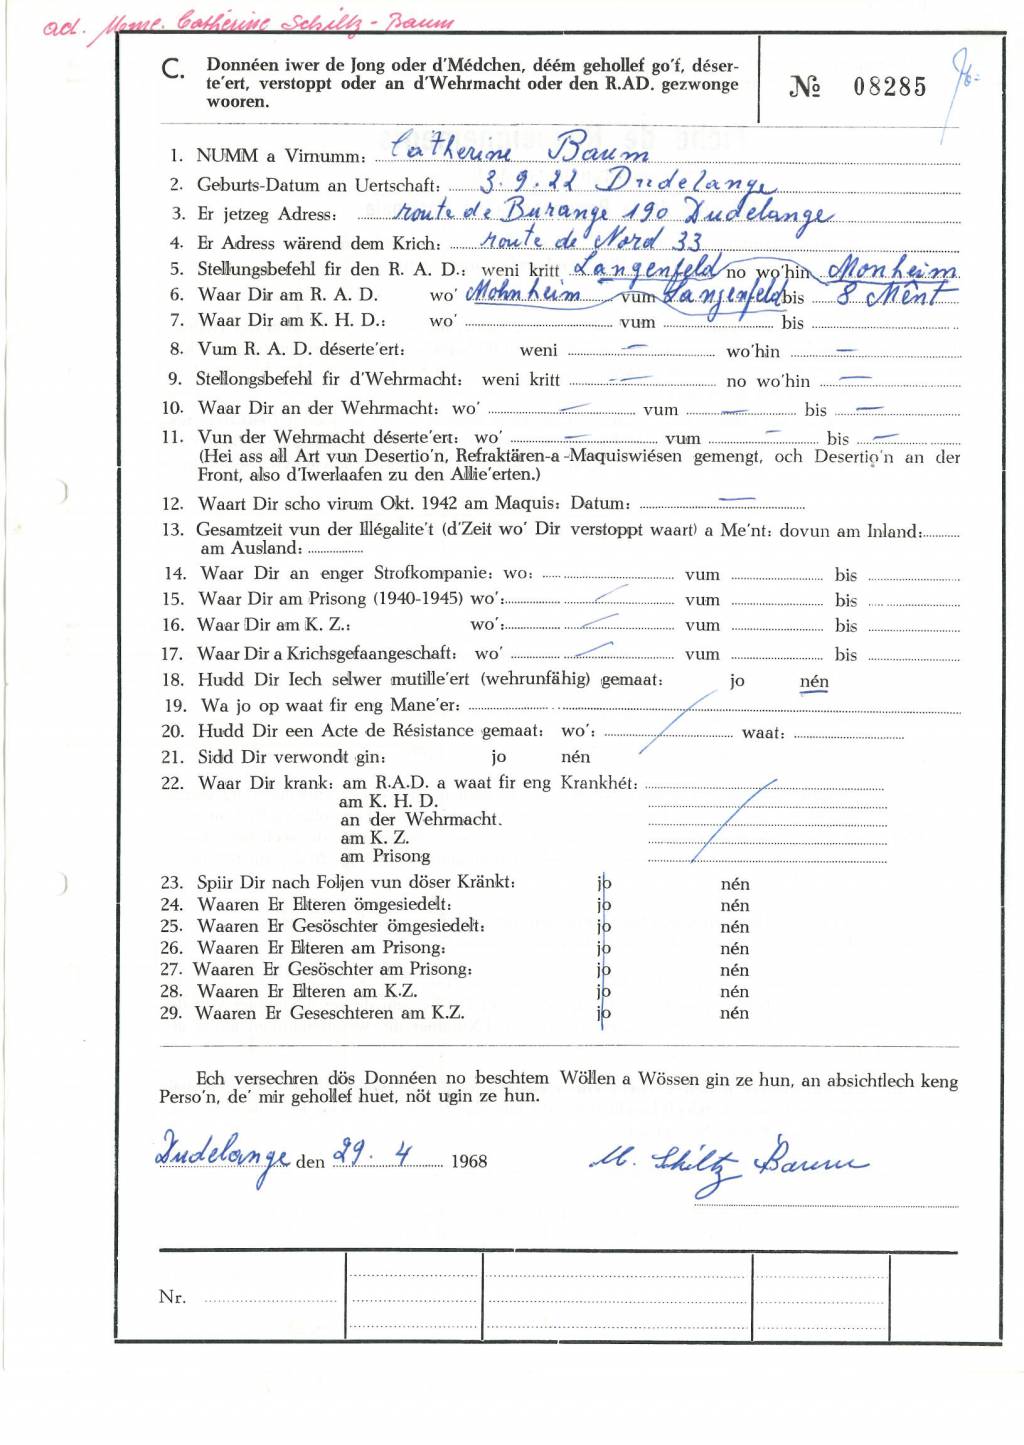 ad. Mme. Catherine Schiltz - Baum
C. Donnéen iwer de Jong oder d'Médchen, déém gehollef go'f, déser-
te'ert, verstoppt oder an d'Wehrmacht oder den R.AD. gezwonge
wooren.
№ 08285
1. NUMM a Virnumm: Catherine Baum
2. Geburts-Datum an Uertschaft: 3.9.22 Dudelange
3. Er jetzeg Adress: route de Burange 190 Dudelange
4. Er Adress wärend dem Krich: route de Nord 33
5. Stellungsbefehl fir den R. A. D.: weni kritt Langenfeld no wo'hin Monheim
6. Waar Dir am R. A. D. wo' Mohnheim vum Langenfeld bis 8 Mênt
7. Waar Dir am K. H. D.: wo' vum bis
8. Vum R. A. D. déserte'ert: weni — wo'hin —
9. Stellongsbefehl fir d'Wehrmacht: weni kritt — no wo'hin —
10. Waar Dir an der Wehrmacht: wo' — vum — bis —
11. Vun der Wehrmacht déserte'ert: wo' — vum — bis —
(Hei ass all Art vun Desertio'n, Refraktären-a-Maquiswiésen gemengt, och Desertio'n an der
Front, also d'Iwerlaafen zu den Allie'erten.)
12. Waart Dir scho virum Okt. 1942 am Maquis: Datum: —
13. Gesamtzeit vun der Illégalite't (d'Zeit wo' Dir verstoppt waart) a Me'nt: dovun am Inland:
am Ausland:
14. Waar Dir an enger Strofkompanie: wo: vum bis
15. Waar Dir am Prisong (1940-1945) wo': vum bis
16. Waar Dir am K. Z.: wo': vum bis
17. Waar Dir a Krichsgefaangeschaft: wo' vum bis
18. Hudd Dir Iech selwer mutille'ert (wehrunfähig) gemaat: jo nén
19. Wa jo op waat fir eng Mane'er:
20. Hudd Dir een Acte de Résistance gemaat: wo': waat:
21. Sidd Dir verwondt gin: jo nén
22. Waar Dir krank: am R.A.D. a waat fir eng Krankhét:
am K. H. D.
an der Wehrmacht.
am K. Z.
am Prisong
23. Spiir Dir nach Foljen vun döser Kränkt: jo nén
24. Waaren Er Elteren ömgesiedelt: jo nén
25. Waaren Er Gesöschter ömgesiedelt: jo nén
26. Waaren Er Elteren am Prisong: jo nén
27. Waaren Er Gesöschter am Prisong: jo nén
28. Waaren Er Elteren am K.Z. jo nén
29. Waaren Er Geseschteren am K.Z. jo nén
Ech versechren dös Donnéen no beschtem Wöllen a Wössen gin ze hun, an absichtlech keng
Perso'n, de' mir gehollef huet, nöt ugin ze hun.
Dudelange den 29. 4 1968 M. Schiltz Baum
Nr.